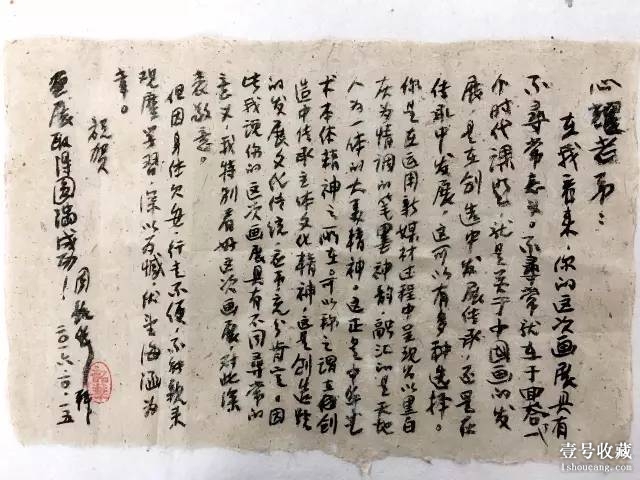 心耀老弟：
在我看来，你的这次画展具有
不寻常意义。不寻常就在于回答一
个时代课题，就是关于中国画的发
展，是在创造中发展传承，还是在
传承中发展，这可以有多种选择。
你是在运用新媒材过程中呈现以黑白
灰为情调的笔墨神韵，融汇的是天地
人为一体的大美精神。这正是中华艺
术本体精神之所在。可以称之谓在创
造中传承主体文化精神，这是创造性
的发展文化传统，应予充分肯定。因
此我说你的这次画展具有不同寻常的
意义，我特别看好这次画展，对此深
表敬意。
但因身体欠安，行走不便，不能来
观摩学习，深以为憾，伏望海涵为
幸。
祝贺
画展取得圆满成功！
周韶华 拜
二〇一六.一〇.一五
壹号收藏
1shoucang.com